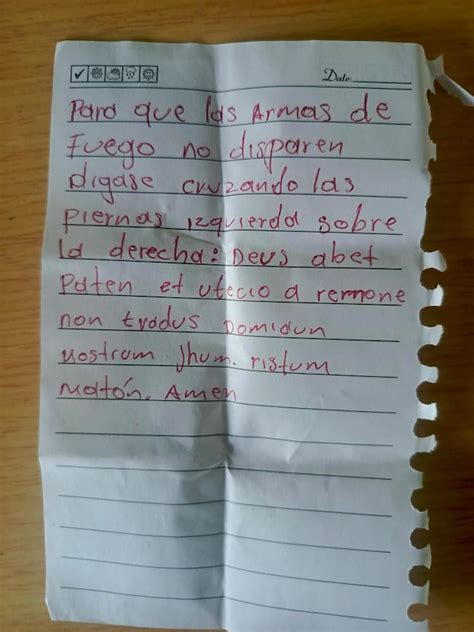 Date
Para que las Armas de
Fuego no disparen
digase cruzando las
piernas izquierda sobre
la derecha: Deus abet
Paten et utecio a remone
non tradus Domidun
nostrum Jhum. ristum
Maltón. Amen